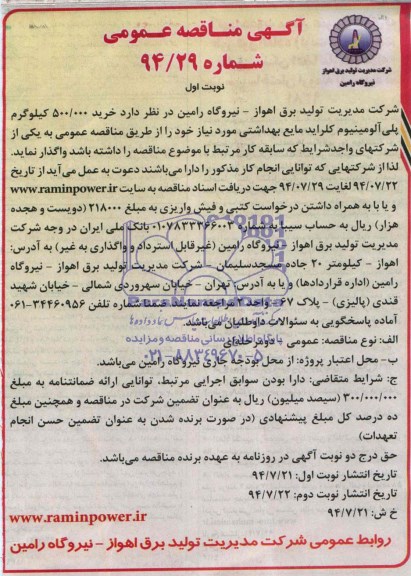 آگهی مناقصه عمومی
شماره ۹۴/۲۹
شرکت مدیریت تولید برق اهواز
نیروگاه رامین
نوبت اول
شرکت مدیریت تولید برق اهواز - نیروگاه رامین در نظر دارد خرید ۵۰۰/۰۰۰ کیلوگرم
پلی آلومینیوم کلراید مایع بهداشتی مورد نیاز خود را از طریق مناقصه عمومی به یکی از
شرکتهای واجدشرایط که سابقه کار مرتبط با موضوع مناقصه را داشته باشد واگذار نماید.
لذا از شرکتهایی که توانایی انجام کار مذکور را دارا می‌باشند دعوت به عمل می‌آید از تاریخ
۹۴/۰۷/۲۲ لغایت ۹۴/۰۷/۲۹ جهت دریافت اسناد مناقصه به سایت www.raminpower.ir
و یا با به همراه داشتن درخواست کتبی و فیش واریزی به مبلغ ۲۱۸۰۰۰ (دویست و هجده
هزار) ریال به حساب سیبا به شماره ۰۱۰۷۸۳۳۳۶۶۰۰۳ بانک ملی ایران در وجه شرکت
مدیریت تولید برق اهواز - نیروگاه رامین (غیرقابل استرداد و واگذاری به غیر) به آدرس:
اهواز - کیلومتر ۲۰ جاده مسجدسلیمان - شرکت مدیریت تولید برق اهواز - نیروگاه
رامین (اداره قراردادها) و یا به آدرس: تهران - خیابان سهروردی شمالی - خیابان شهید
قندی (پالیزی) - پلاک ۶۷ - واحد ۲ مراجعه نمایند ضمنا شماره تلفن ۳۴۴۶۰۹۵۶-۰۶۱
آماده پاسخگویی به سئوالات داوطلبان می‌باشد.
الف: نوع مناقصه: عمومی - دو مرحله‌ای
پایگاه اطلاع رسانی مناقصه و مزایده
ب- محل اعتبار پروژه: از محل بودجه جاری نیروگاه رامین می‌باشد.
۰۲۱-۸۸۳۴۹۶۷۰-۵
ج: شرایط متقاضی: دارا بودن سوابق اجرایی مرتبط، توانایی ارائه ضمانتنامه به مبلغ
۳۰۰/۰۰۰/۰۰۰ (سیصد میلیون) ریال به عنوان تضمین شرکت در مناقصه و همچنین مبلغ
ده درصد کل مبلغ پیشنهادی (در صورت برنده شدن به عنوان تضمین حسن انجام
تعهدات)
حق درج دو نوبت آگهی در روزنامه به عهده برنده مناقصه می‌باشد.
تاریخ انتشار نوبت اول: ۹۴/۷/۲۱
تاریخ انتشار نوبت دوم: ۹۴/۷/۲۲
خ ش: ۹۴/۷/۲۱
www.raminpower.ir
روابط عمومی شرکت مدیریت تولید برق اهواز - نیروگاه رامین